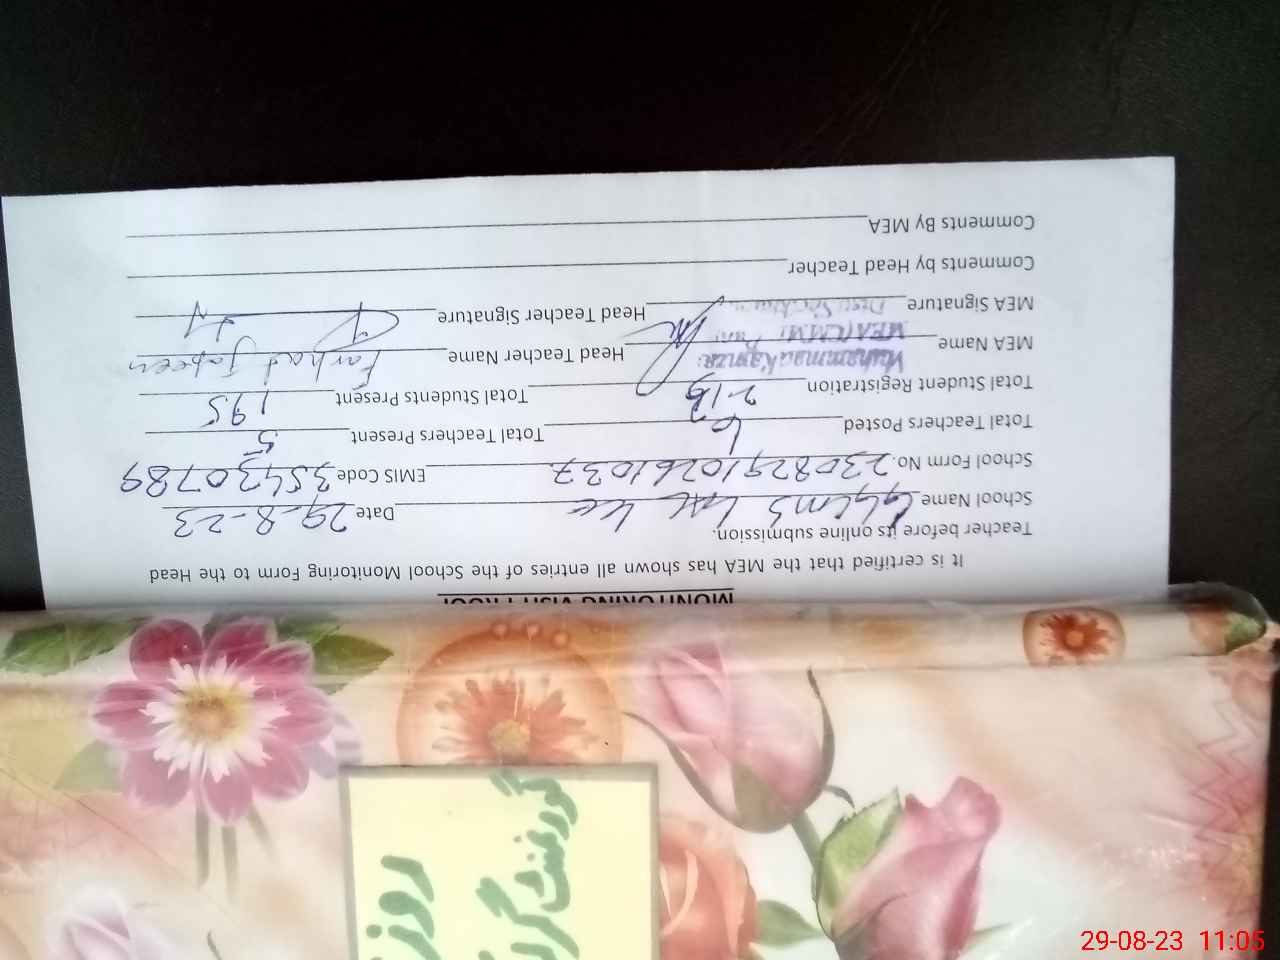 MONITORING VISIT PROOF
It is certified that the MEA has shown all entries of the School Monitoring Form to the Head
Teacher before its online submission.
School Name GGCMS Date 29-8-23
School Form No. 23082910261037 EMIS Code 35430789
Total Teachers Posted 6 Total Teachers Present 5
Total Student Registration 216 Total Students Present 195
MEA Name Muhammad Kamran Head Teacher Name Farhat Jabeen
MEA (CMM) Punjab
MEA Signature Head Teacher Signature
Comments by Head Teacher
Comments By MEA
گورنمنٹ گرلز
روز
29-08-23 11:05